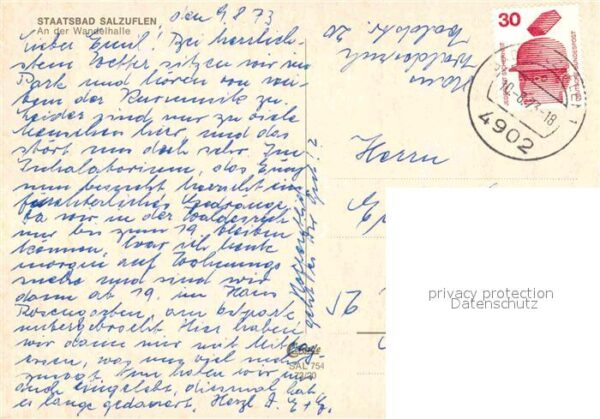 STAATSBAD SALZUFLEN
An der Wandelhalle
den 9.8.73
Lieber Emil! Bei herrlich-
stem Wetter sitzen wir im
Park und hören von wei-
tem der Kurmusik zu.
Leider sind nur zu viele
Menschen hier und das
stört uns doch sehr. Im
Inhalatorium, das Emy
nun besucht herrscht ein
fürchterliches Gedränge.
Da wir in der Waldesruh
nur bis zum 19. bleiben
können, war ich heute
morgen auf Wohnungs
suche und sind wir
dann ab 19. im Haus
Rosengarten, am
untergebracht. Hier haben
wir dann nur mit
essen, was uns viel mehr
zusagt. Nun haben wir uns
auch eingelebt, diesmal hat
es lange gedauert. Herzl. d.
Hoffentlich
geht es Dir gut!?
Haus
Waldesruh
Waldstr. 20
30
DEUTSCHE BUNDESPOST
4902
Herrn
56
privacy protection
Datenschutz
SAL 754